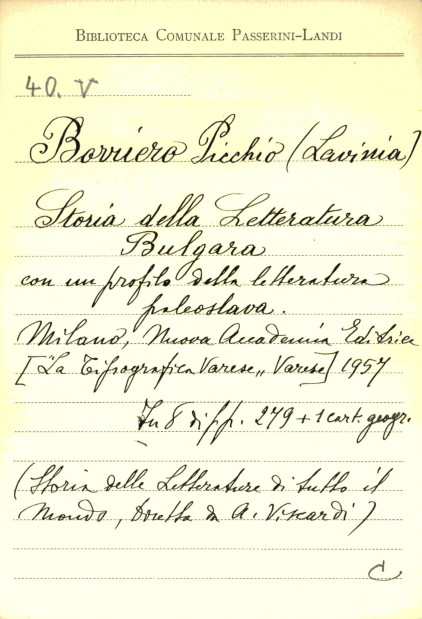 BIBLIOTECA COMUNALE PASSERINI-LANDI
40. V
Borriero Picchio (Lavinia)
Storia della Letteratura
Bulgara
con un profilo della letteratura
paleoslava.
Milano, Nuova Accademia Editrice
["La Tipografica Varese„ Varese] 1957
In 8 di pp. 279 + 1 cart. geogr.
(Storia delle Letterature di tutto il
Mondo, Diretta da A. Viscardi)
C